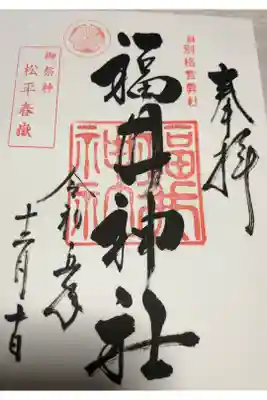 奉拝
別格官幣社
福井神社
福井神社
令和五年
十二月十日
御祭神
松平春嶽